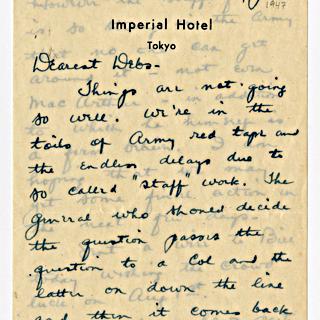 1947
Imperial Hotel
Tokyo
Dearest Debs-
Things are not going
so well. We're in the
toils of Army red tape and
the endless delays due to
so called "staff" work. The
general who should decide
the question passes the
question to a Col and the
latter on down the line
and then it comes back